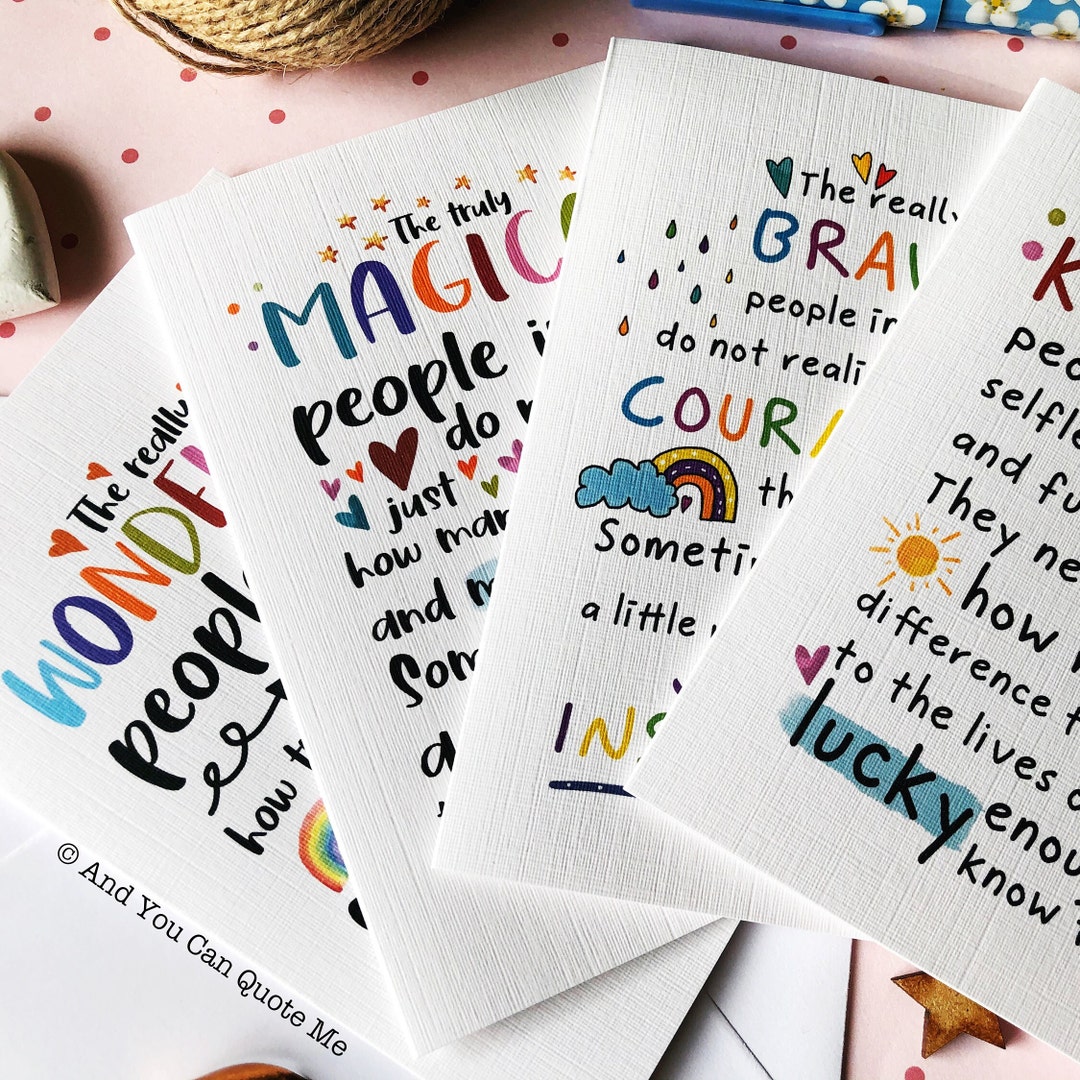 The really
WONDERF
people
how t
The truly
MAGICA
people i
do n
just
how man
and m
Som
The really
BRAV
people in
do not reali
COURA
th
Someti
a little
INS
K
peo
selfle
and fu
They ne
how
difference t
to the lives o
lucky enou
know t
© And You Can Quote Me